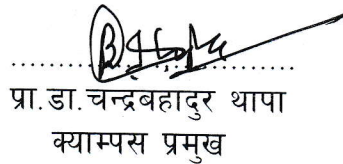 प्रा.डा.चन्द्रबहादुर थापा
क्याम्पस प्रमुख